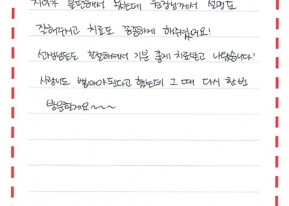 치아가 불편해서 왔는데 원장님께서 설명도
잘해주시고 치료도 꼼꼼하게 해주셨어요!
선생님들도 친절하셔서 기분 좋게 치료받고 나왔습니다!
사랑니도 뽑아야된다고 했는데 그 때 다시 한번
방문할게요~~~